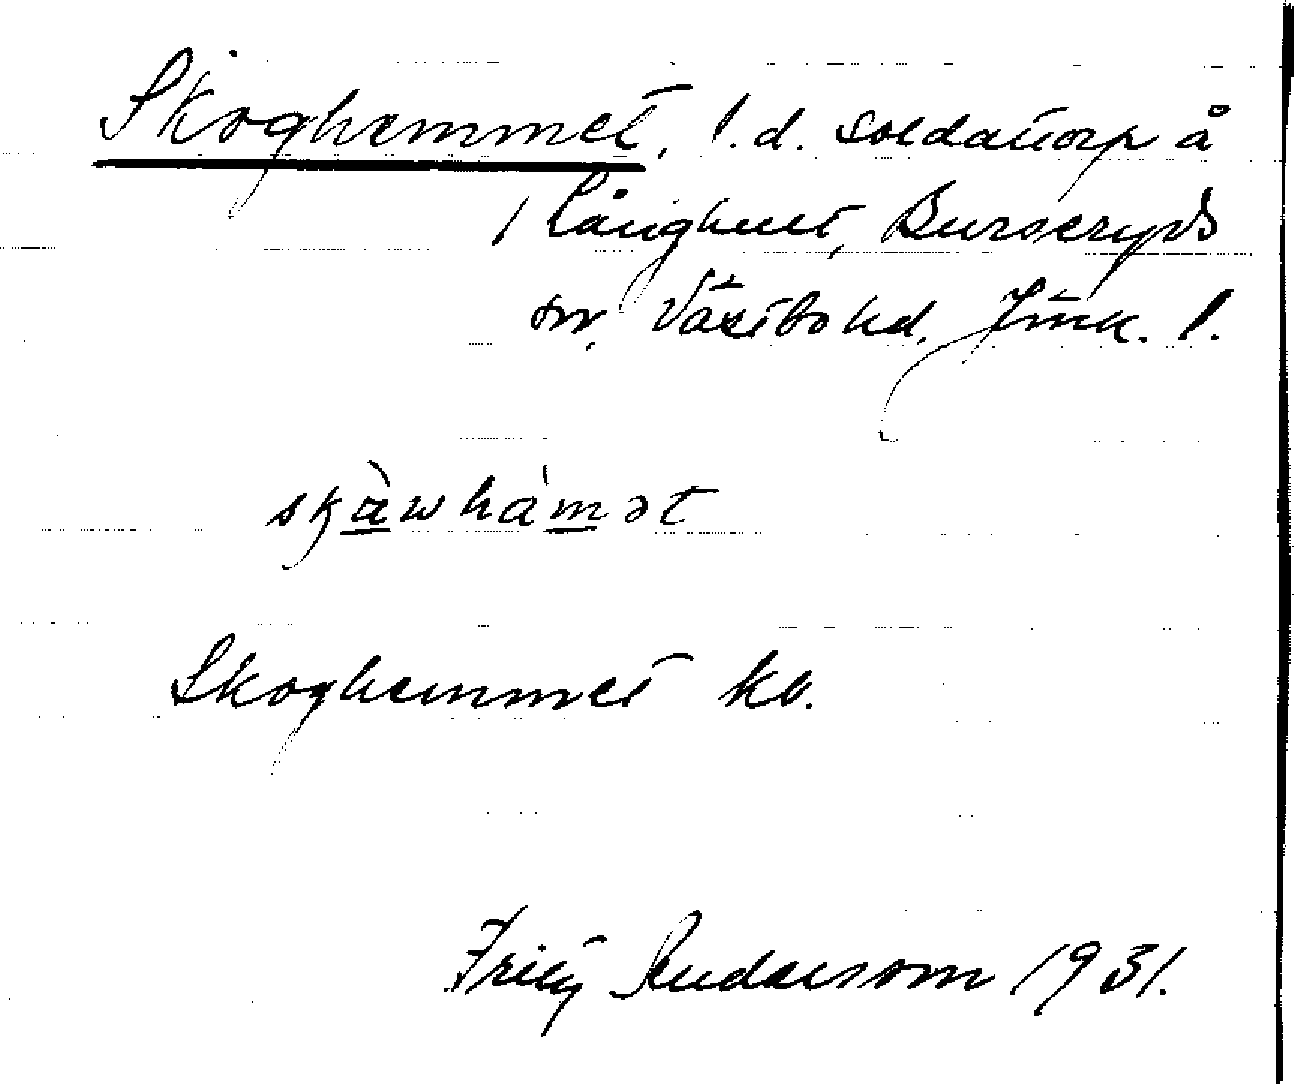 Skoghemmet, f.d. soldattorp å
/ Långhult, Burseryds
sn, Västbo hd. Jönk. l.
skàwhámət
Skoghemmet kb.
Fritz Andersson 1931.